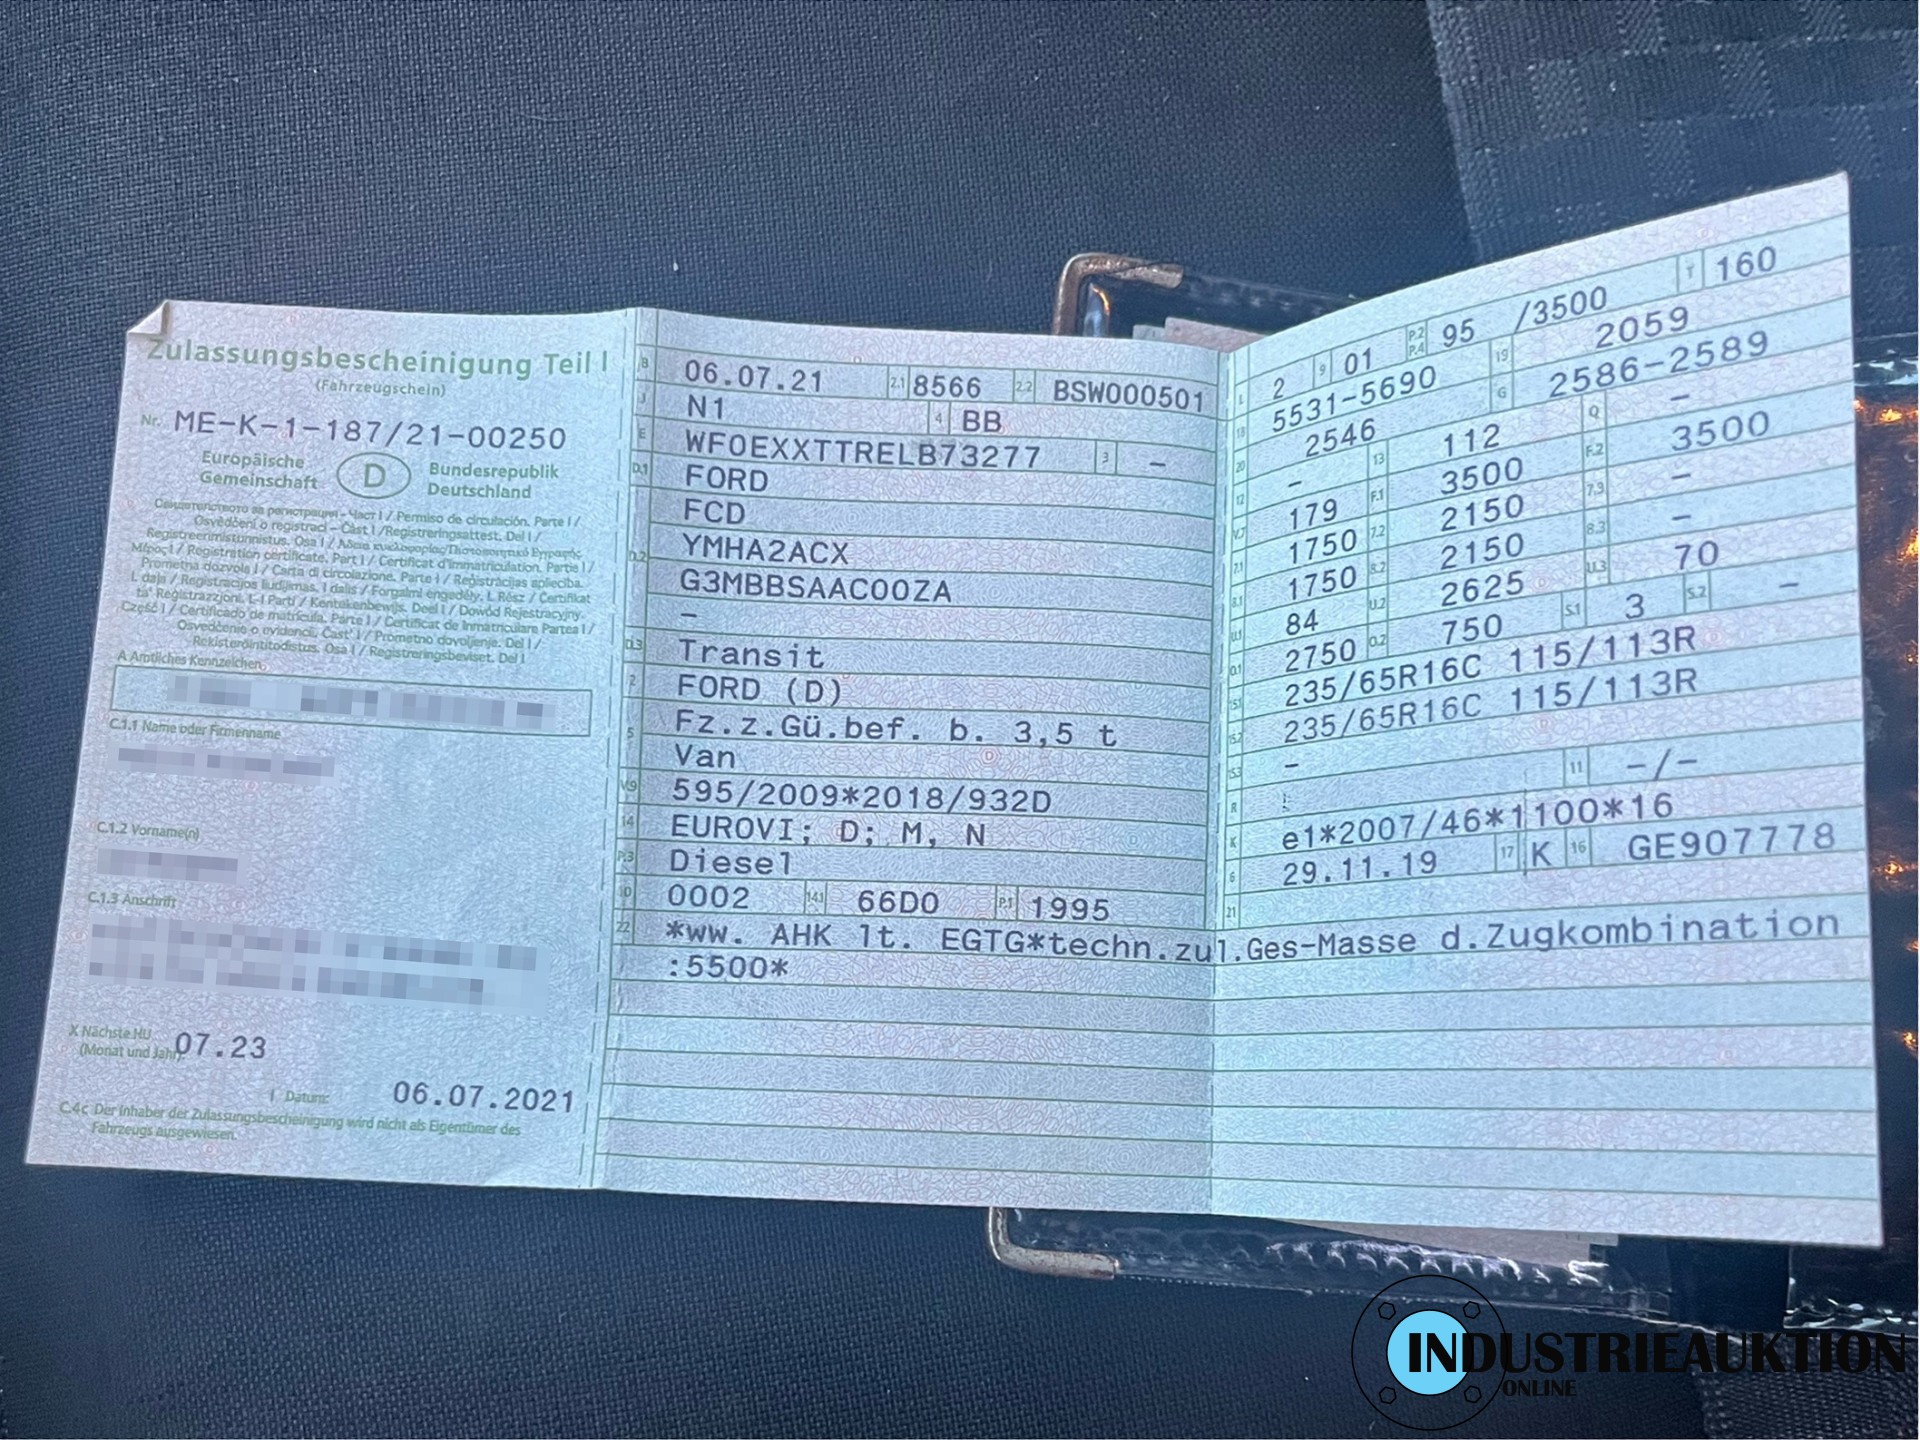 Zulassungsbescheinigung Teil I
(Fahrzeugschein)
Nr. ME-K-1-187/21-00250
Europäische Gemeinschaft D Bundesrepublik Deutschland
Свидетелството за регистрация – Част I / Permiso de circulación. Parte I /
Osvědčení o registraci – Část I / Registreringsattest. Del I /
Registreerimistunnistus. Osa I / Άδεια κυκλοφορίας/Πιστοποιητικό Εγγραφής
Μέρος I / Registration certificate. Part I / Certificat d'immatriculation. Partie I /
Prometna dozvola I / Carta di circolazione. Parte I / Reģistrācijas apliecība.
I. daļa / Registracijos liudijimas. I dalis / Forgalmi engedély. I. Rész / Ċertifikat
ta' Reġistrazzjoni. L-I Parti / Kentekenbewijs. Deel I / Dowód Rejestracyjny.
Część I / Certificado de matrícula. Parte I / Certificat de Inmatriculare Partea I /
Osvedčenie o evidencii. Časť I / Prometno dovoljenje. Del I /
Rekisteröintitodistus. Osa I / Registreringsbeviset. Del I
A Amtliches Kennzeichen
C.1.1 Name oder Firmenname
C.1.2 Vorname(n)
C.1.3 Anschrift
X Nächste HU
(Monat und Jahr) 07.23
I Datum: 06.07.2021
C.4c Der Inhaber der Zulassungsbescheinigung wird nicht als Eigentümer des
Fahrzeugs ausgewiesen.
B 06.07.21 2.1 8566 2.2 BSW000501
J N1 4 BB
E WF0EXXTTRELB73277 3 –
D.1 FORD
FCD
D.2 YMHA2ACX
G3MBBSAAC00ZA
–
D.3 Transit
2 FORD (D)
5 Fz.z.Gü.bef. b. 3,5 t
Van
V.9 595/2009*2018/932D
14 EUROVI; D; M, N
P.3 Diesel
10 0002 14.1 66D0 P.1 1995
22 *ww. AHK lt. EGTG*techn.zul.Ges-Masse d.Zugkombination
:5500*
L 2 9 01 P.2 P.4 95 /3500 T 160
18 5531-5690 19 2059
20 2546 G 2586-2589
12 – 13 112 Q –
V.7 179 F.1 3500 F.2 3500
7.1 1750 7.2 2150 7.3 –
8.1 1750 8.2 2150 8.3 –
U.1 84 U.2 2625 U.3 70
O.1 2750 O.2 750 S.1 3 S.2 –
15.1 235/65R16C 115/113R
15.2 235/65R16C 115/113R
15.3 –
R 11 –/–
K e1*2007/46*1100*16
6 29.11.19 17 K 16 GE907778
21
INDUSTRIEAUKTION
ONLINE